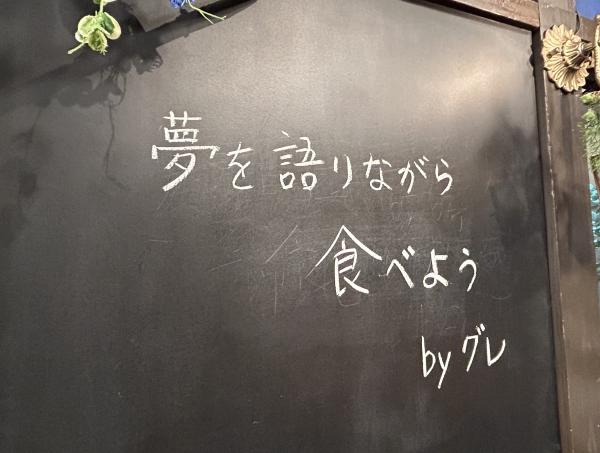 夢を語りながら
食べよう
by グレ